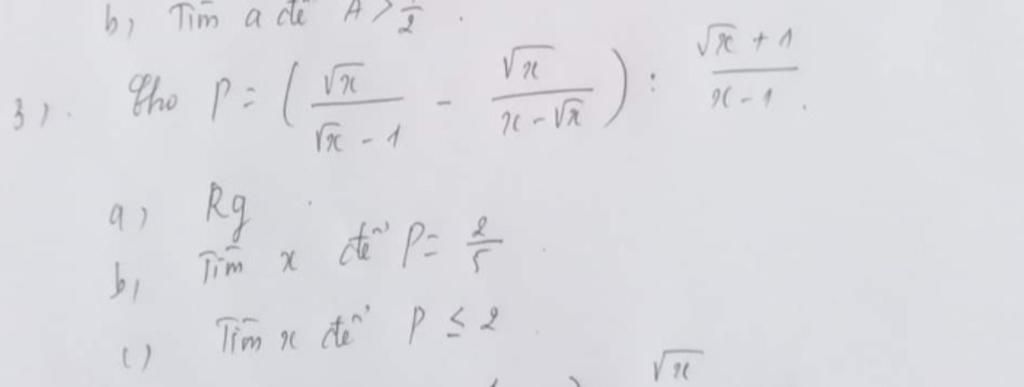 b, Tìm a để A > 1/2.
3). Cho P = ( √x / (√x - 1) - √x / (x - √x) ) : (√x + 1) / (x - 1).
a) Rg
b, Tìm x để P = 2/5.
c) Tìm x để P ≤ 2.
√x